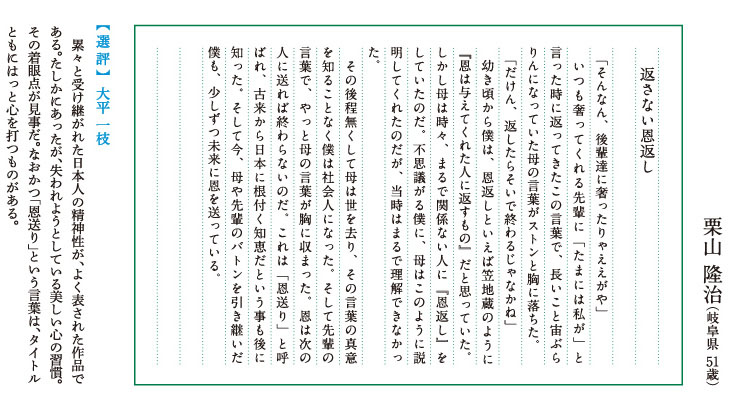 栗山 隆治（岐阜県 51歳）
返さない恩返し
「そんなん、後輩達に奢ったりゃええがや」
いつも奢ってくれる先輩に「たまには私が」と
言った時に返ってきたこの言葉で、長いこと宙ぶら
りんになっていた母の言葉がストンと胸に落ちた。
「だけん、返したらそいで終わるじゃなかね」
幼き頃から僕は、恩返しといえば笠地蔵のように
『恩は与えてくれた人に返すもの』だと思っていた。
しかし母は時々、まるで関係ない人に『恩返し』を
していたのだ。不思議がる僕に、母はこのように説
明してくれたのだが、当時はまるで理解できなかっ
た。
その後程無くして母は世を去り、その言葉の真意
を知ることなく僕は社会人になった。そして先輩の
言葉で、やっと母の言葉が胸に収まった。恩は次の
人に送れば終わらないのだ。これは「恩送り」と呼
ばれ、古来から日本に根付く知恵だという事も後に
知った。そして今、母や先輩のバトンを引き継いだ
僕も、少しずつ未来に恩を送っている。
【選評】大平 一枝
累々と受け継がれた日本人の精神性が、よく表された作品で
ある。たしかにあったが、失われようとしている美しい心の習慣。
その着眼点が見事だ。なおかつ「恩送り」という言葉は、タイトル
ともにはっと心を打つものがある。